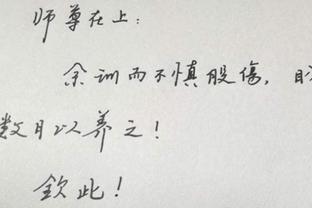 师尊在上:
余训而不慎股傷,
数月以养之!
钦此!